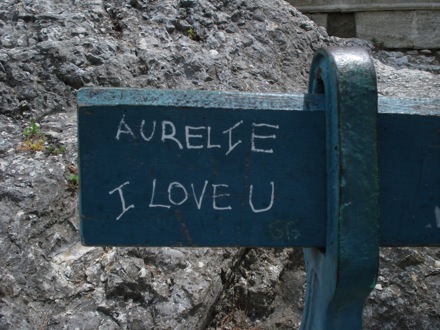 AURELIE
I LOVE U